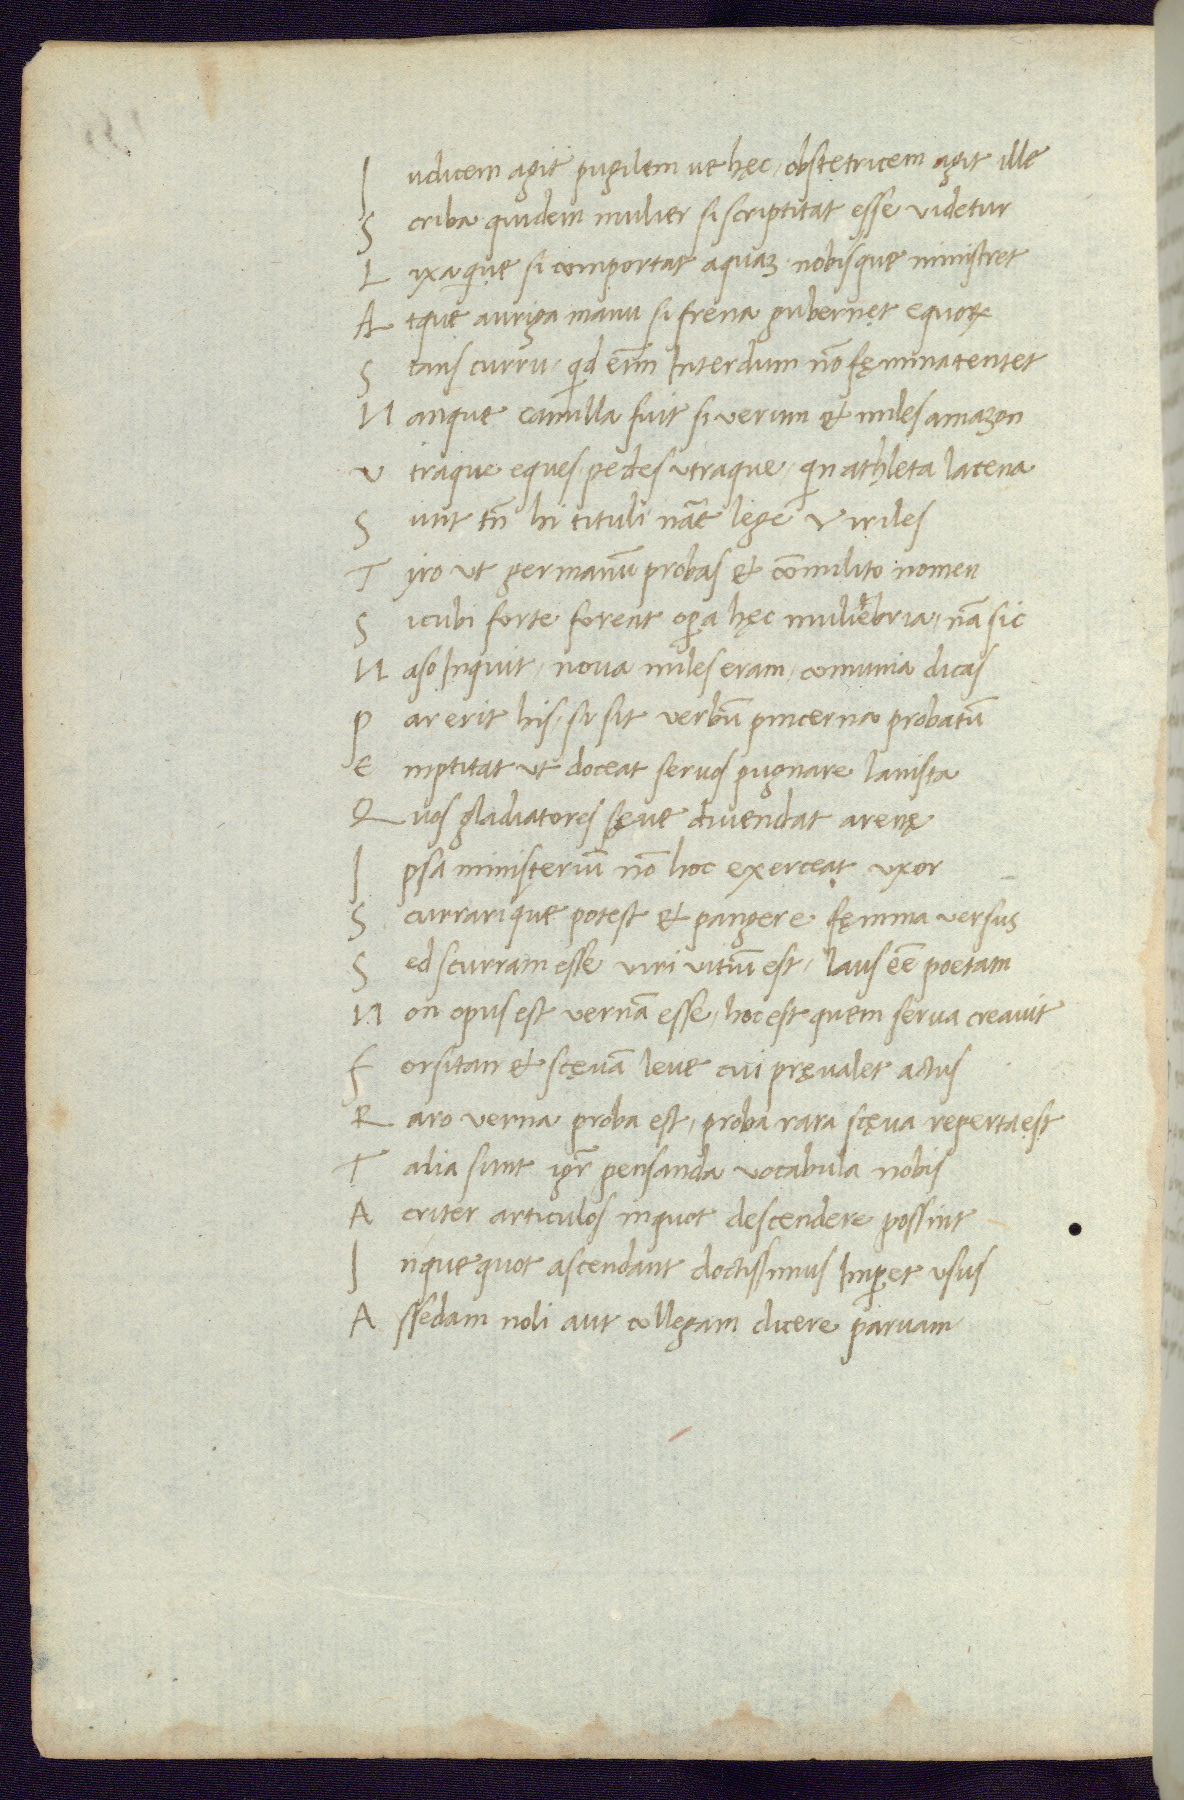 Iudicem agit pugilem ve hęc, obstetricem agit ille
Scriba quidem mulier si scriptitat esse videtur
Lixaque si comportat aquaʒ nobisque ministret
Atque auriga manu si frena gubernęt equoꝝ
Stans curru, qͥd eīm Interdum nō fęmina tentet
Nanque camilla fuit si verum et miles amazon
Utraque eques, pedes utraque, qͥn athleta lacena
Sunt tn̄ hi tituli nāe lege viriles
Tyro ut germanū probas et cōmilito nomen
Sicubi forte forent oꝑa hęc muliebria, nā sic
Naso Inquit, nova miles eram, comunia dicas
Par erit his, si sit verbū pincerna probatū
Emptitat ut doceat servos pugnare lanista
Quos gladiatores sęve divendat arenę
Ipsa ministerium nō hoc exerceat uxor
Scurrarique potest et pangere fęmina versus
Sed scurram esse viri vitiū est, laus eē poetam
Non opus est vernā esse, hoc est quem serva creavit
Forsitan et scęvā leve cui pręvalet actus
Raro verna proba est, proba rara scęva reperta est
Talia sunt igr̄ pensanda vocabula nobis
Acriter articulos inquot descendere possint
Inque quot ascendant doctissimus Imꝑet usus
Assedam noli aut collegam dicere parvam